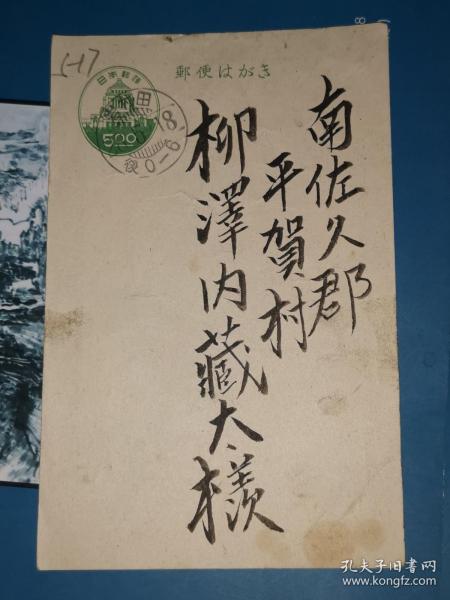 5-17
郵便はがき
日本郵便
500
南佐久郡
平賀村
柳澤内藏太様
孔夫子旧书网
www.kongfz.com